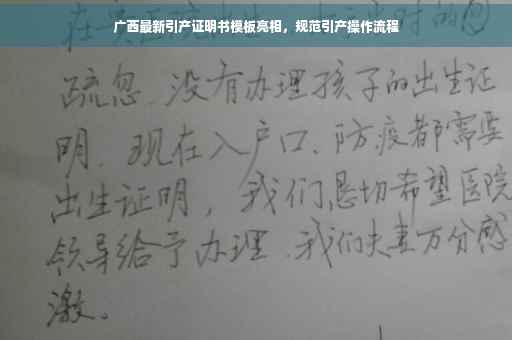 广西最新引产证明书模板亮相，规范引产操作流程
疏忽.没有办理孩子的出生证
明.现在入户口、防疫都需要
出生证明，我们恳切希望医院
领导给予办理.我们夫妻万分感
激。